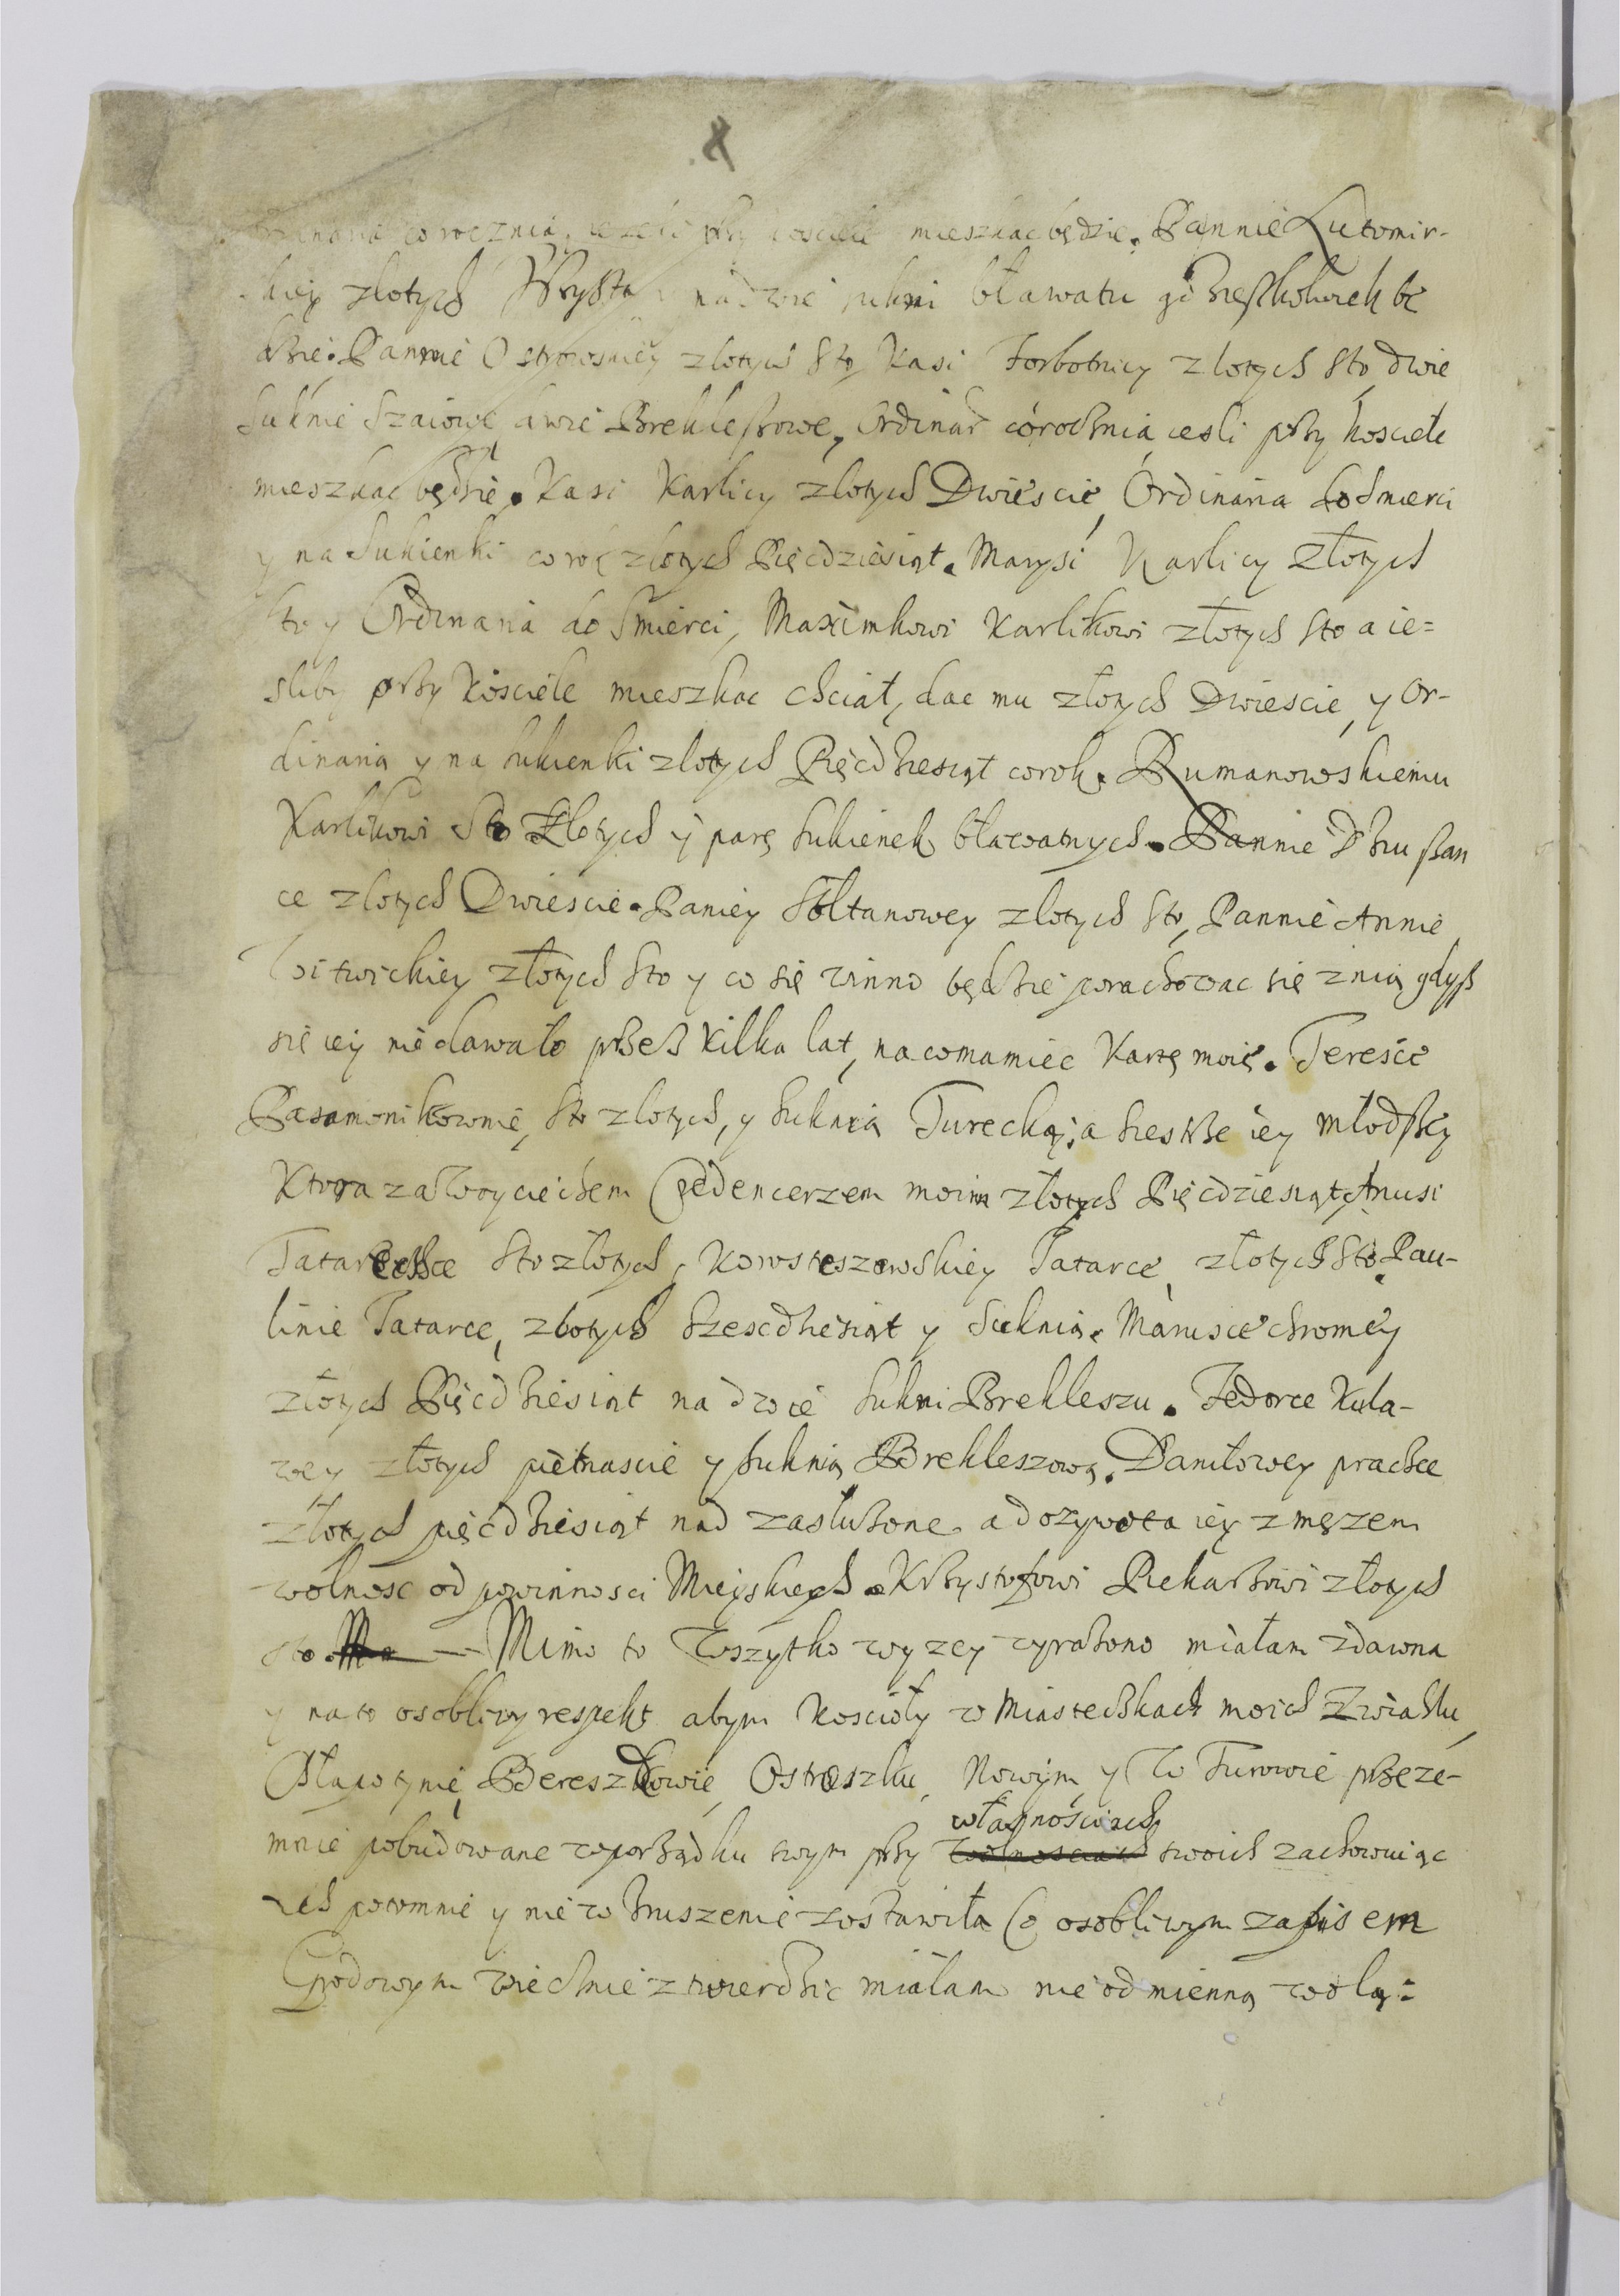 corocznia, iezeli przy kosciele mieszkac będzie. Pannie Lutomir-
skiey zlotych Trzysta na dwie sukni bławatu gdzieszkolwiek bę
dzie. Pannie Ostrowskiey zlotych sto, Kasi Forbotnicy zlotych sto, dwie
suknie szaiowe dwie Brekleszowe, Ordinar corocznia, iesli przy kosciele
mieszkac będzie. Kasi Karlicy zlotych Dwiescie, Ordinaria do smierci
y na sukienki corok zlotych Pięcdziesiąt. Marysi Karlicy złotych
sto y Ordinaria do smierci, Maximkowi Karlikowi złotych sto a ie=
sliby przy kosciele mieszkac chciał, dac mu złotych Dwiescie, y Or-
dinaria y na sukienki zlotych Pięcdziesiąt corok. Rumanowskiemu
Karlikowi Sto Zlotych y parę sukienek bławatnych. Pannie Dzuszan
ce zlotych Dwiescie. Paniey Sołtanowey zlotych sto, Pannie Annie
Woitwickiey złotych sto y co się winno będzie porachowac się z nią gdysz
się iey nie dawało przesz kilka lat, na co ma miec kartę moię. Teresce
Pasamonikownie, sto zlotych, y suknią Turecką, a siestrze iey młodszey
Ktora za Woyciechem Credencerzem moim złotych Pięcdziesiąt, Anusi
Tatarce sto zlotych, Kowsreszowskiey Tatarce, złotych sto. Pau-
linie Tatarce, zlotych szescdziesiąt y suknią. Marusce chromey
złotych Pięcdziesiąt na dwie sukni Brekleszu. Fedorce Kula-
wey złotych piętnascie y suknią Brekleszową. Daniłowey praczce
złotych pięcdziesiąt nad zasłuzone a do zywota iey z męzem
wolnosc od powinnosci Mieyskiech. Krzysztofowi Piekarzowi złotych
sto. — Mimo to wszytko wyzey wyrazono miałam zdawna
y na to osobliwy respekt abym koscioły w Miasteczkach moich Zwiahlu,
Cstapotynie, Bereszkowie, Ostroszku, Nowym y w Turowie przeze-
mnie pobudowane w porządku swym przy
własnościach
wolnosciach swoich zachowuiąc
ich potomnie y nie wzruszenie zostawiła Co osobliwym zapisem
Grodowym wiecznie ztwierdzic miałam nieodmienną wolą: